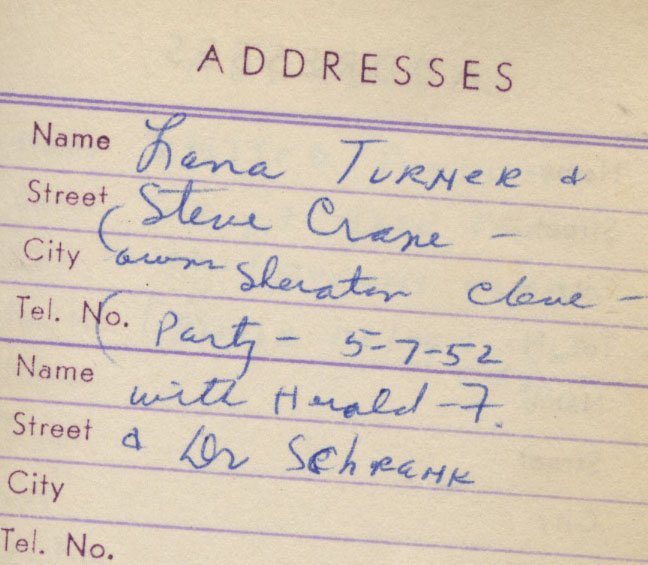 ADDRESSES
Name Lana Turner &
Street (Steve Crane -
City owns Sheraton Cleve -
Tel. No. (Party - 5-7-52
Name with Harold F.
Street & Dr Schrank
City
Tel. No.